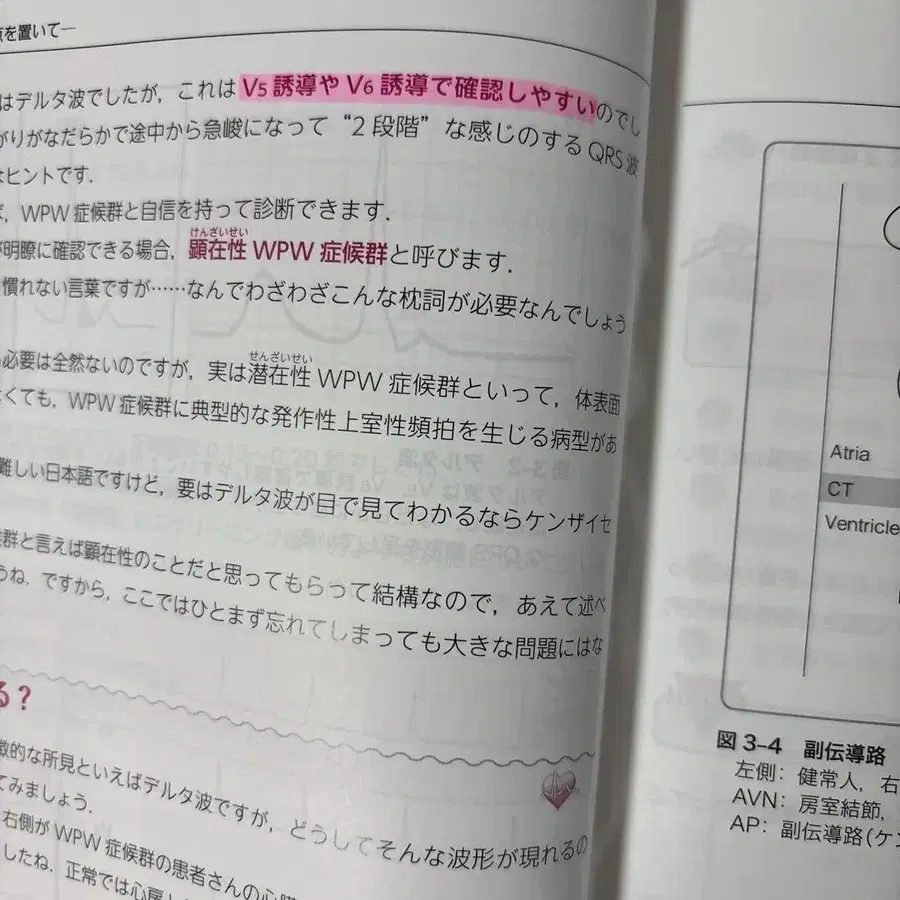 点を置いて―
はデルタ波でしたが，これは V5 誘導や V6 誘導で確認しやすいのでし
がりがなだらかで途中から急峻になって “2 段階” な感じのする QRS 波
なヒントです．
ば，WPW 症候群と自信を持って診断できます．
けんざいせい
が明瞭に確認できる場合，顕在性 WPW 症候群と呼びます．
慣れない言葉ですが……なんでわざわざこんな枕詞が必要なんでしょう
せんざいせい
必要は全然ないのですが，実は潜在性 WPW 症候群といって，体表面
くても，WPW 症候群に典型的な発作性上室性頻拍を生じる病型があ
難しい日本語ですけど，要はデルタ波が目で見てわかるならケンザイセ
群と言えば顕在性のことだと思ってもらって結構なので，あえて述べ
うね．ですから，ここではひとまず忘れてしまっても大きな問題にはな
る？
徴的な所見といえばデルタ波ですが，どうしてそんな波形が現れるの
てみましょう．
右側が WPW 症候群の患者さんの心臓
したね．正常では心房
Atria
CT
Ventricle
図 3-4 副伝導路
左側：健常人，右
AVN：房室結節，
AP：副伝導路（ケン